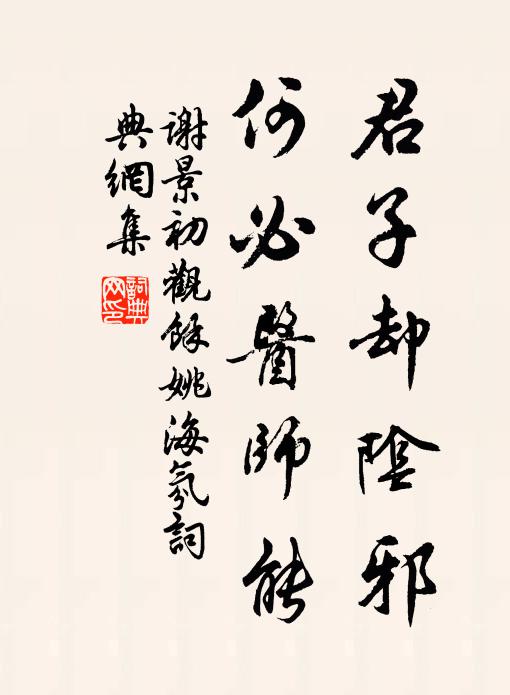 君子却陰邪
何必醫師能
謝景初觀餘姚海氛詞
典網集
詞典
网印